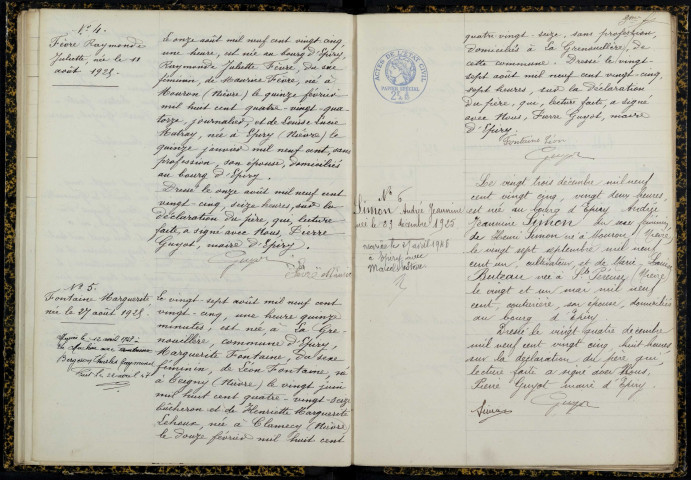 N° 4.
Fèvre Raymonde
Juliette, née le 11
août 1925.
Le onze août mil neuf cent vingt-cinq
une heure, est née au bourg d'Epiry,
Raymonde Juliette Fèvre, du sexe
féminin, de Maurice Fèvre, né à
Mouron (Nièvre) le quinze février
mil huit cent quatre-vingt-qua
torze, journalier, et de Louise Lucie
née à Epiry (Nièvre) le
quinze janvier mil neuf cent, sans
profession, son épouse, domiciliés
au bourg d'Epiry.
Dressé le onze août mil neuf cent
vingt-cinq, seize heures, sur la
déclaration du père, qui, lecture
faite, a signé avec Nous, Pierre
Guyot, maire d'Epiry.
Guyot
N° 5.
Fontaine Marguerite
née le 27 août 1925.
Le vingt-sept août mil neuf cent
vingt-cinq, une heure quinze
minutes, est née à la Gre-
nouillère, commune d'Epiry,
Marguerite Fontaine, du sexe
féminin, de Léon Fontaine, né
à (Nièvre) le vingt juin
mil huit cent quatre-vingt-seize
bûcheron et de Henriette Marguerite
Lehoux, née à Clamecy (Nièvre)
le douze février mil huit cent
quatre-vingt-seize, sans profession,
domiciliés à la Grenouillère, de
cette commune. Dressé le vingt-
sept août mil neuf cent vingt-cinq,
sept heures, sur la déclaration
du père, qui, lecture faite, a signé
avec Nous, Pierre Guyot, maire
d'Epiry.
Fontaine Léon
Guyot
ACTES DE L'ETAT CIVIL
PAPIER SPECIAL
N° 6
Simon Andrée Jeannine
née le 23 décembre 1925
mariée le avril 1948
à Epiry avec
Le vingt trois décembre mil neuf
cent vingt cinq, vingt deux heures,
est née au bourg d'Epiry Andrée
Jeannine Simon, du sexe féminin,
de Henri Simon né à Mouron, Nièvre,
le vingt sept septembre mil neuf
cent un, cultivateur, et de Marie Louise
Buteau née à Pérouse, Nièvre
le vingt et un mai mil neuf
cent, couturière, son épouse, domiciliés
au bourg d'Epiry
Dressé le vingt quatre décembre
mil neuf cent vingt cinq huit heures
sur la déclaration du père qui,
lecture faite a signé avec Nous,
Pierre Guyot maire d'Epiry.
Simon
Guyot